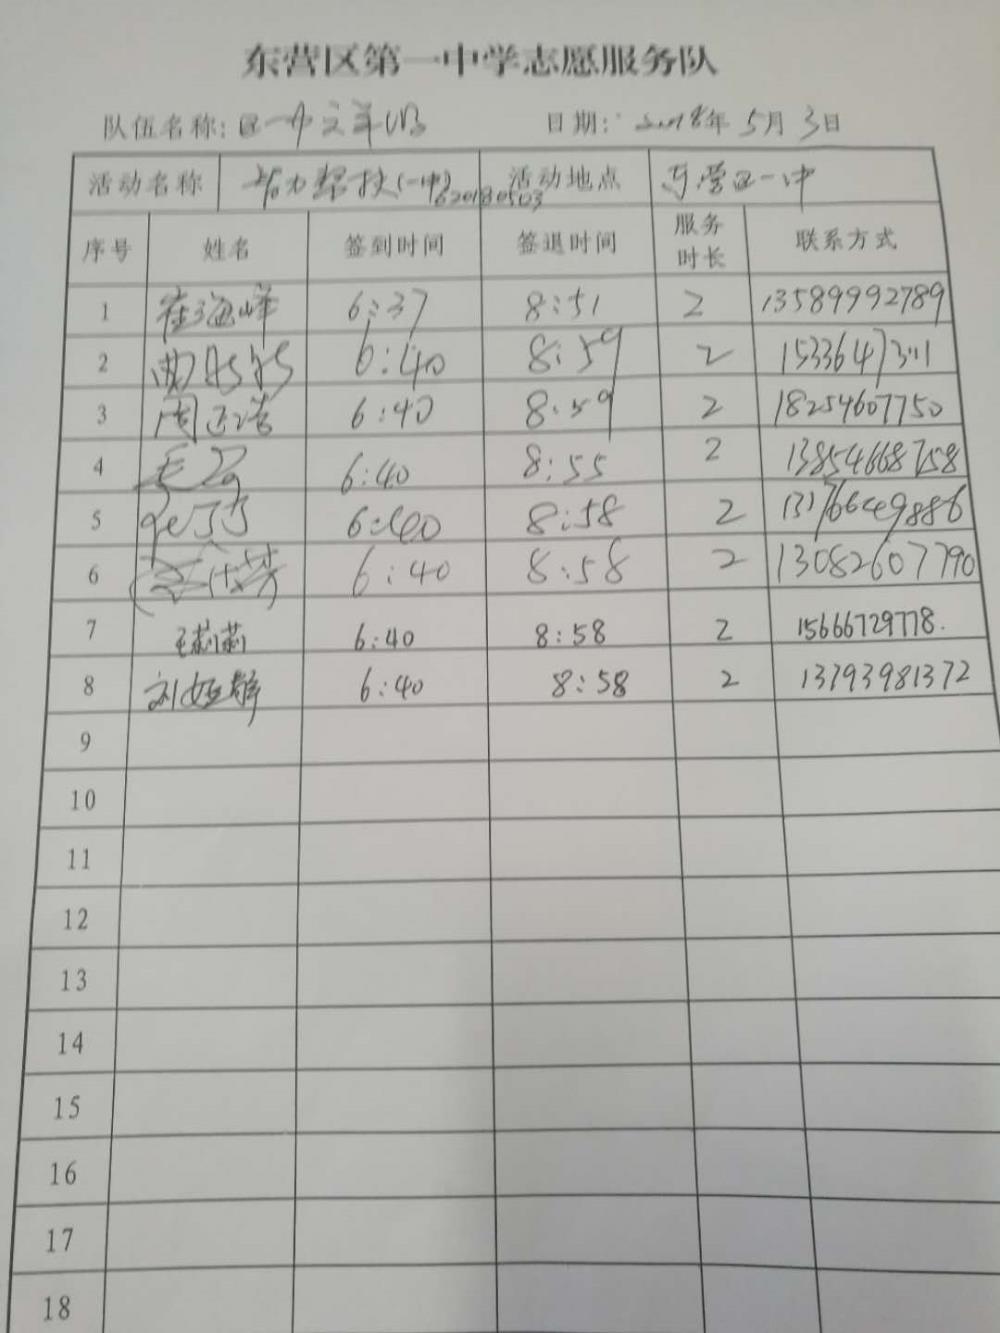 东营区第一中学志愿服务队
队伍名称: 区一中 日期: 2018年5月3日
活动名称 智力帮扶(一中)620180503 活动地点 东营区一中
序号 姓名 签到时间 签退时间 服务时长 联系方式
1 崔海峰 6:37 8:51 2 13589992789
2 6:40 8:59 2 15336473111
3 周 6:40 8:59 2 18254607750
4 6:40 8:55 2 13854668758
5 6:40 8:58 2 13176649886
6 6:40 8:58 2 13082607790
7 王莉莉 6:40 8:58 2 15666729778.
8 刘娅静 6:40 8:58 2 13793981372
9
10
11
12
13
14
15
16
17
18